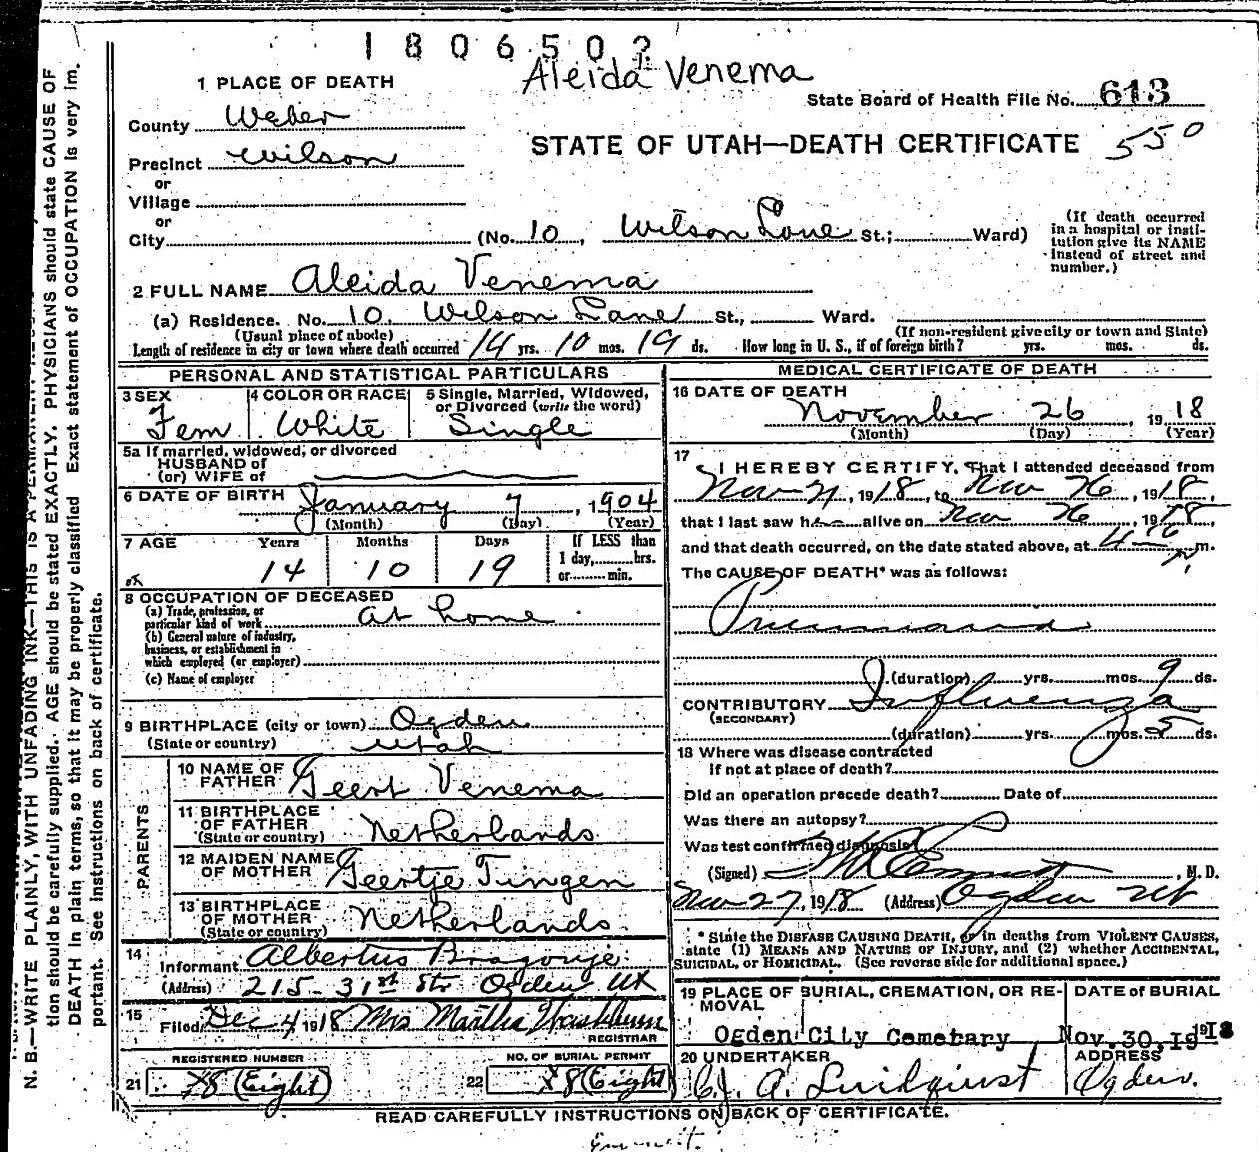 1806502
Aleida Venema
1 PLACE OF DEATH
State Board of Health File No. 613
County Weber
STATE OF UTAH—DEATH CERTIFICATE 550
Precinct Wilson
or
Village
or
City (No. 10, Wilson Lane St.; Ward)
(If death occurred
in a hospital or insti-
tution give its NAME
instead of street and
number.)
2 FULL NAME Aleida Venema
(a) Residence. No. 10. Wilson Lane St., Ward.
(Usual place of abode) (If non-resident give city or town and State)
Length of residence in city or town where death occurred 14 yrs. 10 mos. 19 ds. How long in U. S., if of foreign birth? yrs. mos. ds.
PERSONAL AND STATISTICAL PARTICULARS
3 SEX 4 COLOR OR RACE 5 Single, Married, Widowed,
or Divorced (write the word)
Fem White Single
5a If married, widowed, or divorced
HUSBAND of
(or) WIFE of
6 DATE OF BIRTH January 7, 1904
(Month) (Day) (Year)
7 AGE Years Months Days If LESS than
1 day, hrs.
or min.
14 10 19
8 OCCUPATION OF DECEASED
(a) Trade, profession, or
particular kind of work At home
(b) General nature of industry,
business, or establishment in
which employed (or employer)
(c) Name of employer
9 BIRTHPLACE (city or town) Ogden
(State or country) Utah
PARENTS
10 NAME OF
FATHER Geert Venema
11 BIRTHPLACE
OF FATHER
(State or country) Netherlands
12 MAIDEN NAME
OF MOTHER Geertje Tingen
13 BIRTHPLACE
OF MOTHER
(State or country) Netherlands.
14
Informant Albertus Bragonje
(Address) 215-31st Str Ogden Ut
15
Filed Dec 4 1918 Mrs Martha Washburn
REGISTRAR
REGISTERED NUMBER NO. OF BURIAL PERMIT
21 8 (Eight) 22 8 (Eight)
MEDICAL CERTIFICATE OF DEATH
16 DATE OF DEATH
November 26, 1918
(Month) (Day) (Year)
17
I HEREBY CERTIFY, That I attended deceased from
Nov 21, 1918, to Nov 26, 1918,
that I last saw her alive on Nov 26, 1918,
and that death occurred, on the date stated above, at m.
The CAUSE OF DEATH* was as follows:
Pneumonia
(duration) yrs. mos. 9 ds.
CONTRIBUTORY Influenza
(SECONDARY)
(duration) yrs. mos. 5 ds.
18 Where was disease contracted
if not at place of death?
Did an operation precede death? Date of
Was there an autopsy?
Was test confirmed diagnosis?
(Signed) , M. D.
Nov 27, 1918 (Address) Ogden Ut
* State the DISEASE CAUSING DEATH, or in deaths from VIOLENT CAUSES,
state (1) MEANS AND NATURE OF INJURY, and (2) whether ACCIDENTAL,
SUICIDAL, or HOMICIDAL. (See reverse side for additional space.)
19 PLACE OF BURIAL, CREMATION, OR RE-
MOVAL
DATE OF BURIAL
Ogden City Cemetary Nov. 30, 1918
20 UNDERTAKER ADDRESS
C. J. A. Lindquist Ogden.
READ CAREFULLY INSTRUCTIONS ON BACK OF CERTIFICATE.
N. B.—WRITE PLAINLY, WITH UNFADING INK—THIS IS A PERMANENT
tion should be carefully supplied. AGE should be stated EXACTLY. PHYSICIANS should state CAUSE OF
DEATH in plain terms, so that it may be properly classified Exact statement of OCCUPATION is very im.
portant. See instructions on back of certificate.